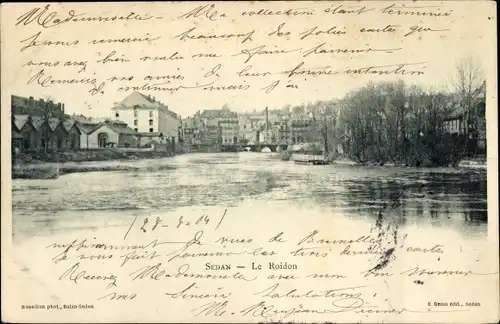 Mademoiselle Ma collection étant terminée
Je vous remercie beaucoup des jolies carte que
vous avez bien voulu me faire parvenir
Remerciez vos amies de leur bonne intention
28-8-04
de vues de Bruxelles
je vous fait parvenir les trois dernières carte
Recevez Mademoiselle avec mon bon souvenir
mes Sincère Salutations
SEDAN — Le Roidon
Rousillon phot., Balan-Sedan
E. Genin édit., Sedan